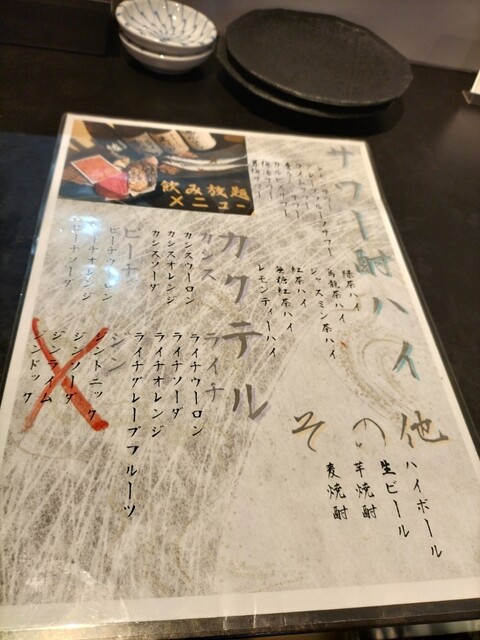 飲み放題
メニュー
サワー酎ハイ
緑茶ハイ
烏龍茶ハイ
ジャスミン茶ハイ
紅茶ハイ
無糖紅茶ハイ
レモンティーハイ
その他
ハイボール
生ビール
芋焼酎
麦焼酎
カクテル
カシス
カシスウーロン
カシスオレンジ
カシスソーダ
ピーチ
ピーチウーロン
ピーチオレンジ
ピーチソーダ
ライチ
ライチウーロン
ライチソーダ
ライチオレンジ
ライチグレープフルーツ
ジン
ジントニック
ジンソーダ
ジンライム
ジンドック